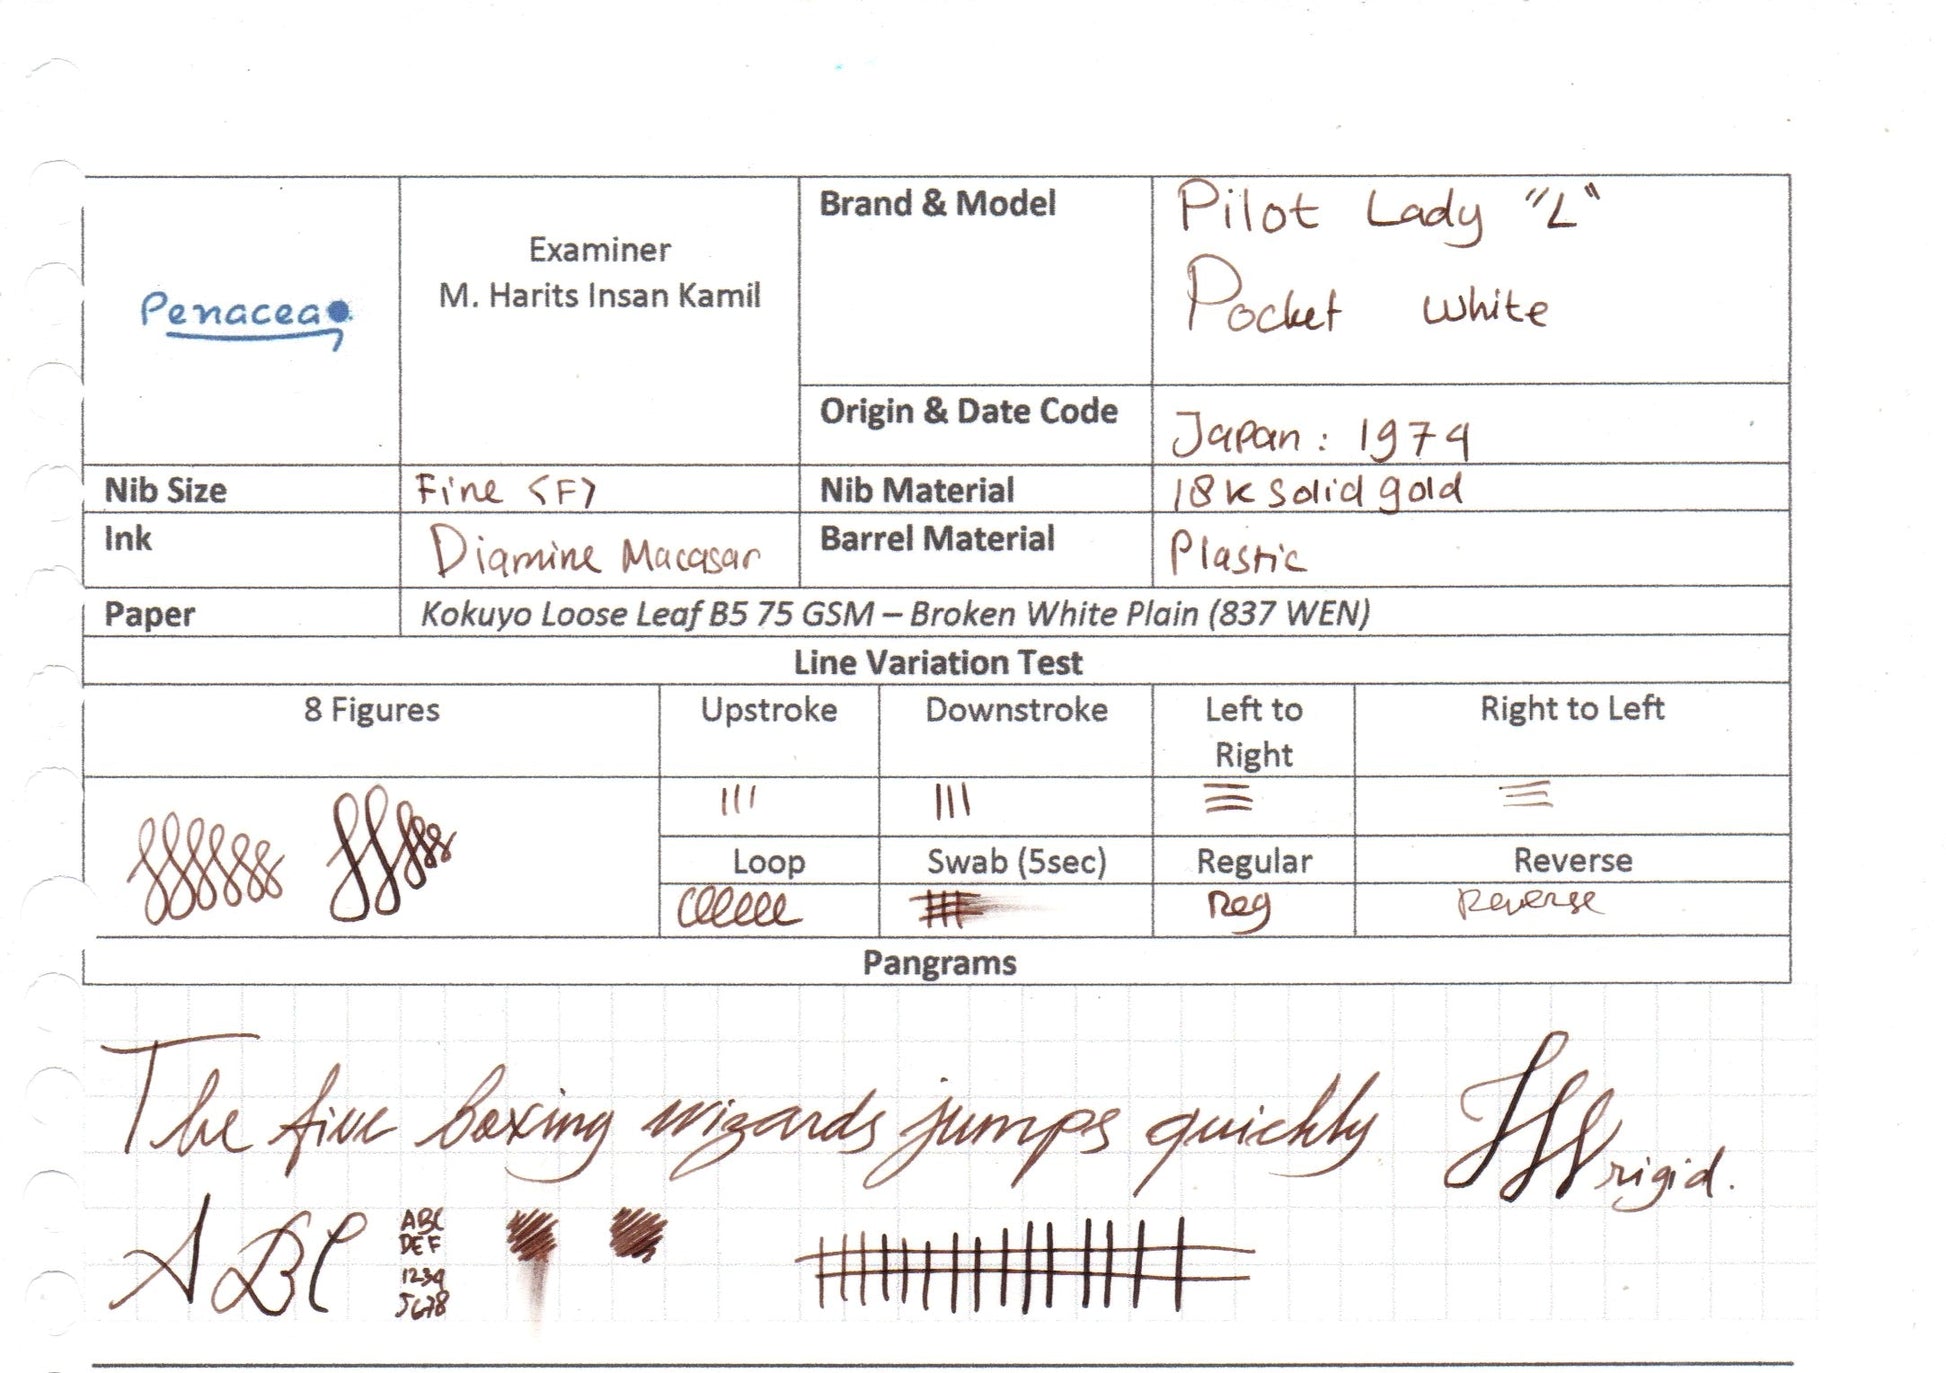 Penacea
Examiner
M. Harits Insan Kamil
Brand & Model
Pilot Lady "L"
Pocket White
Origin & Date Code
Japan : 1974
Nib Size
Fine <F>
Nib Material
18K Solid gold
Ink
Diamine Macasar
Barrel Material
Plastic
Paper
Kokuyo Loose Leaf B5 75 GSM – Broken White Plain (837 WEN)
Line Variation Test
8 Figures
Upstroke
Downstroke
Left to
Right
Right to Left
Loop
Swab (5sec)
Regular
Reverse
Reg
Reverse
Pangrams
The five boxing wizards jumps quickly
rigid.
ABC
ABC
DEF
1234
5678